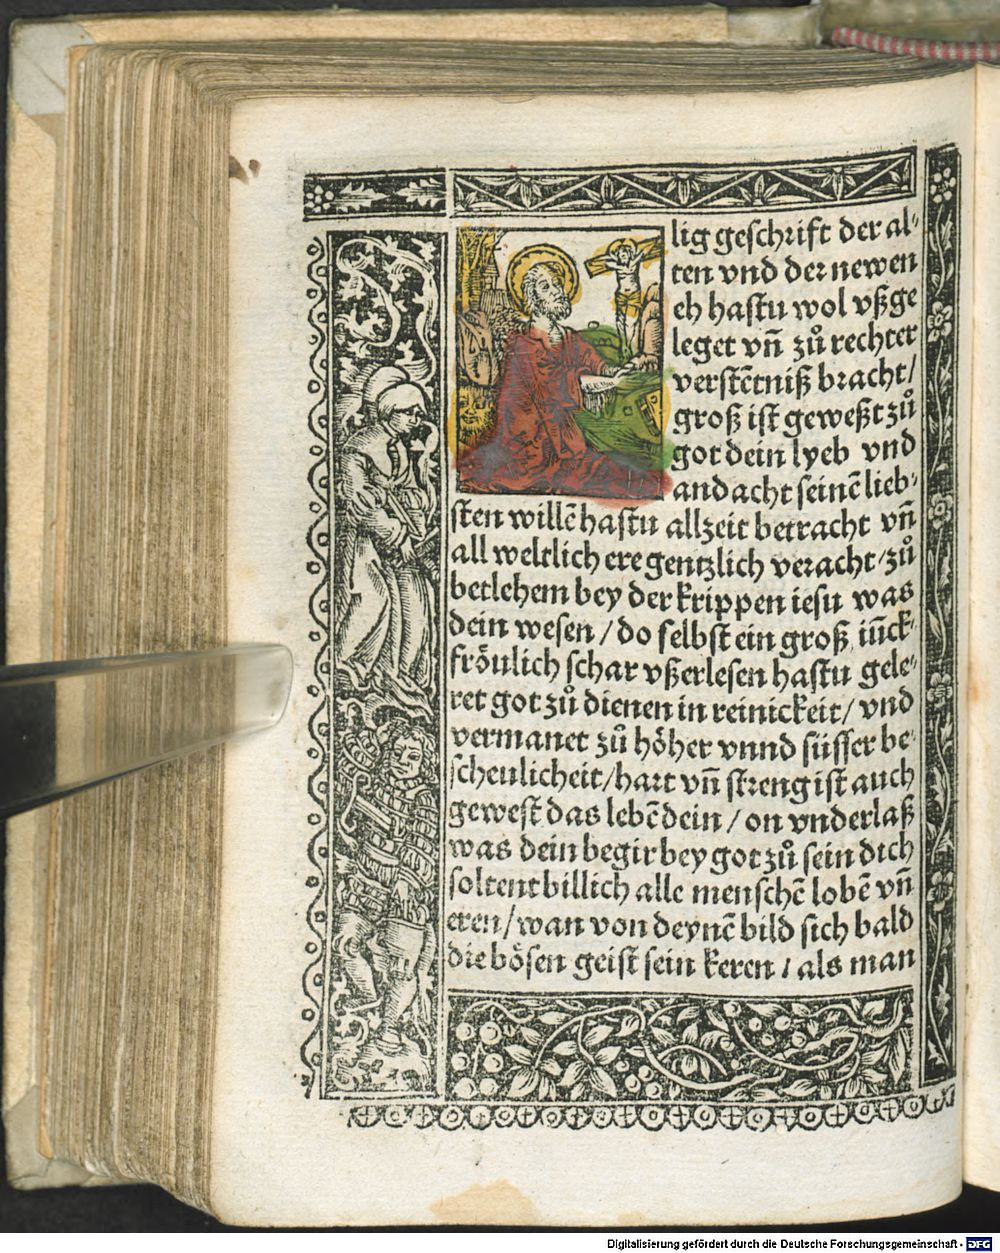 lig geschrift der al⸗
ten vnd der newen
eh hastu wol vßge
leget vñ zů rechter
verstẽtniß bracht/
groß ist geweßt zů
got dein lyeb vnd
andacht seinẽ lieb⸗
sten willẽ hastu allzeit betracht vñ
all weltlich ere gentzlich veracht/zů
betlehem bey der krippen iesu was
dein wesen/do selbst ein groß iũck⸗
fröulich schar vßerlesen hastu gele⸗
ret got zů dienen in reinickeit/vnd
vermanet zů höher vnnd süsser be⸗
scheulicheit/hart vñ streng ist auch
gewest das lebẽ dein/on vnderlaß
was dein begir bey got zů sein dich
soltent billich alle menschẽ lobẽ vñ
eren/wan von deynẽ bild sich bald
die bösen geist sein keren/als man
Digitalisierung gefördert durch die Deutsche Forschungsgemeinschaft - DFG